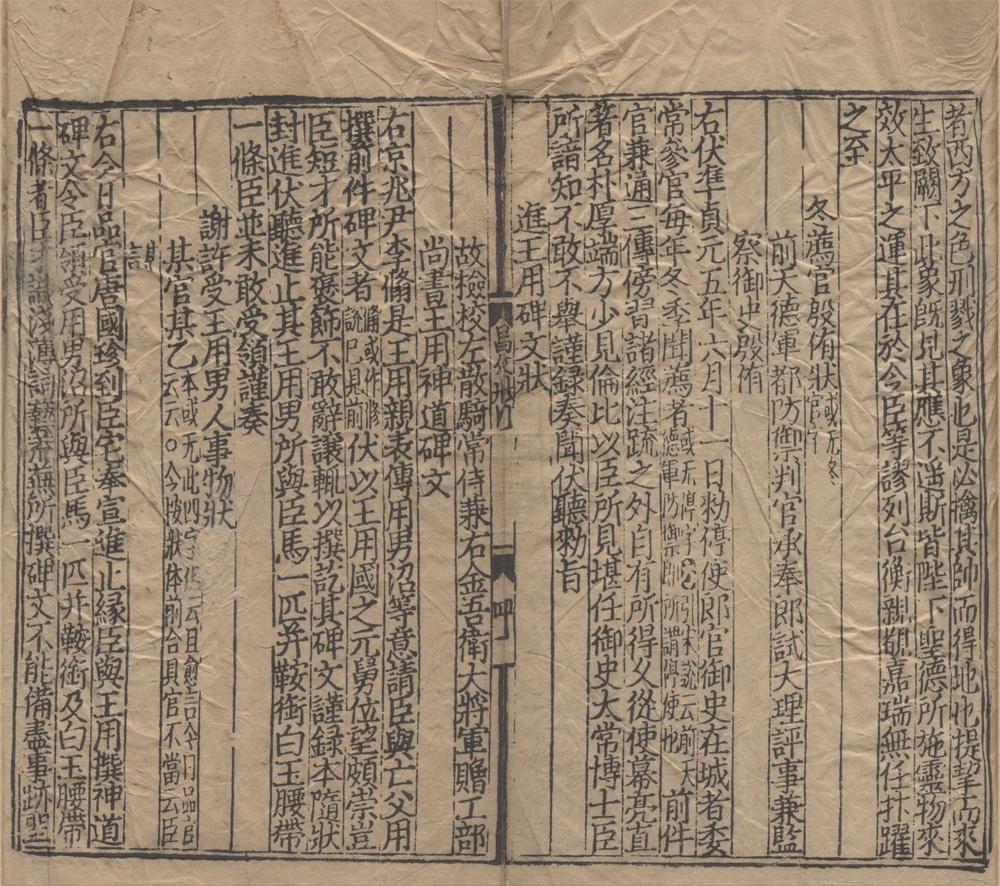 者西方之色刑戮之象也是必擒其帥而得地也提挈而來
生致闕下此象既見其應不遥斯皆陛下聖德所施靈物來
效太平之運其在於今臣等謬列台衡親覩嘉瑞無任抃躍
之至
冬薦官殷侑狀或无冬官字
前天德軍都防禦判官承奉郎試大理評事兼監
察御史殷侑
右伏準貞元五年六月十一日勑停使郎官御史在城者委
常參官每年冬季聞薦者或无停字引狀云前天德軍防禦即所謂停使也前件
官兼通三傳傍習諸經注疏之外自有所得父從使幕亮直
著名朴厚端方少見倫比以臣所見堪任御史大常博士臣
所諳知不敢不舉謹録奏聞伏聽勑旨
進王用碑文狀
故檢校左散騎常侍兼右金吾衛大將軍贈工部
尚書王用神道碑文
右京兆尹李翛是王用親表傳用男沼等意請臣與亡父用
撰前件碑文者翛或作脩說已見前伏以王用國之元舅位望頗崇豈
臣短才所能褒飾不敢辭讓輒以撰訖其碑文謹録本隨狀
封進伏聽進止其王用男所與臣馬一匹并鞍銜白玉腰帶
一條臣並未敢受領謹奏
謝許受王用男人事物狀
某官某乙本或无此四字但云且愈言今日品官云云○今按狀体前合具官不當云臣
謀
右今日品官唐國珍到臣宅奉宣進止縁臣與王用撰神道
碑文令臣領受用男沼所與臣馬一匹并鞍銜及白玉腰帶
一條者臣才識淺薄詞藝荒蕪所撰碑文不能備盡事跡聖
四